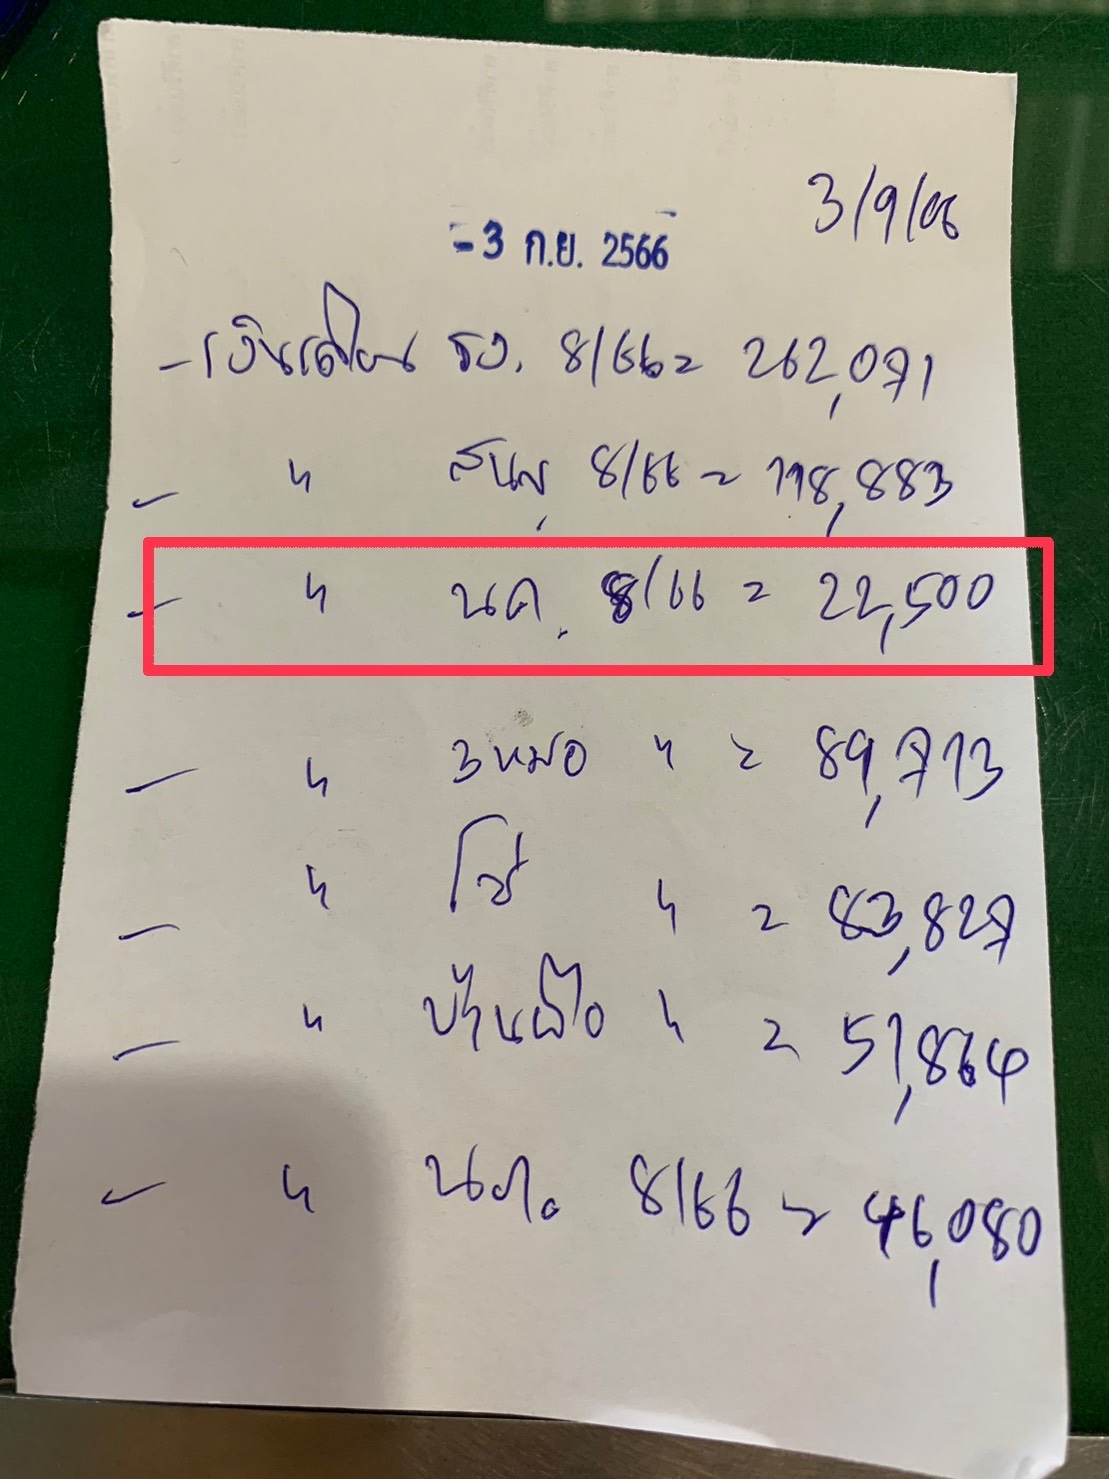 3/9/66
-3 ก.ย. 2566
- เงินเดือน รง. 8/66 = 262,071
- " สนม 8/66 = 118,883
- " นค. 8/66 = 22,500
- " 3หมอ " = 89,713
- " โช่ " = 83,827
- " บ้านผือ " = 51,864
- " 8/66 = 46,080